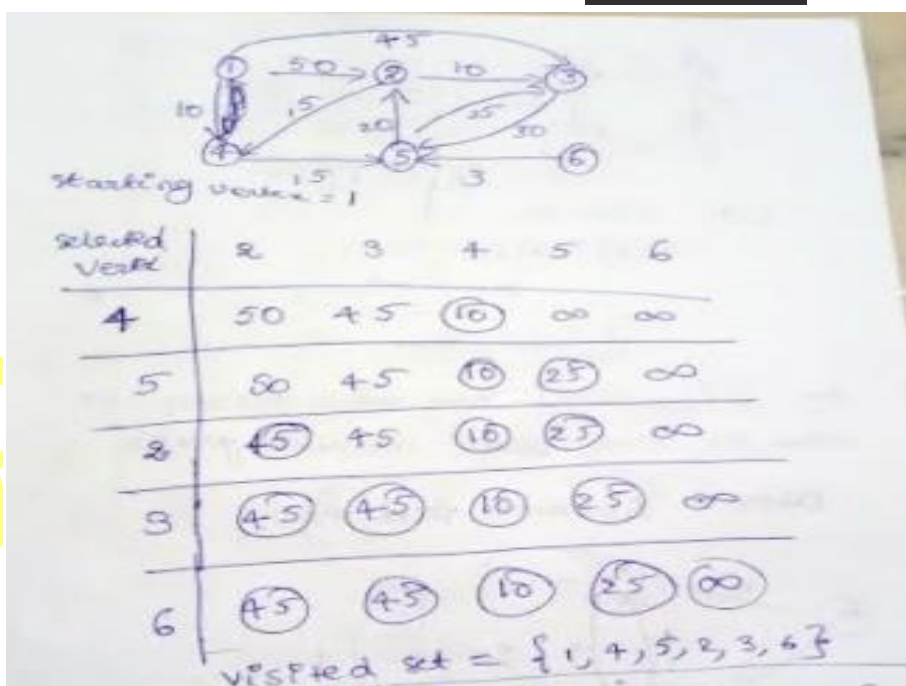 45
1 50 2 10 3
10 15 20 25 30
4 15 5 3 6
starting vertex = 1
selected 2 3 4 5 6
Vertex
4 50 45 10 ∞ ∞
5 50 45 10 25 ∞
2 45 45 10 25 ∞
3 45 45 10 25 ∞
6 45 45 10 25 ∞
visited set = {1, 4, 5, 2, 3, 6}